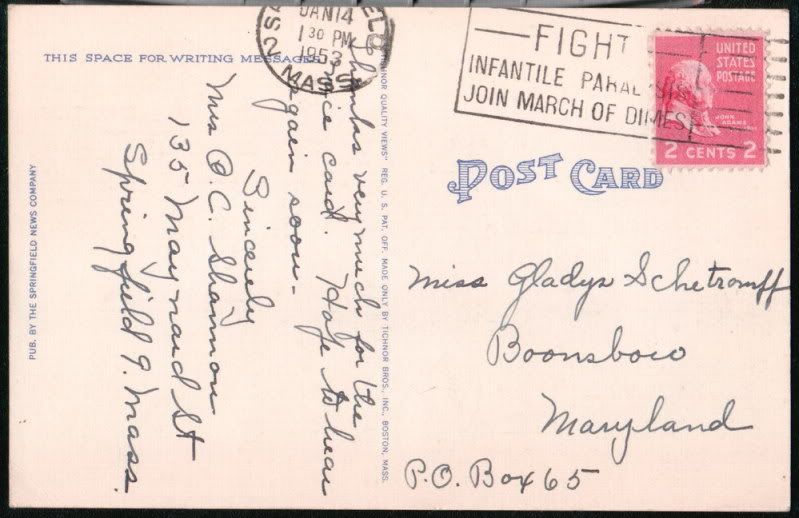 THIS SPACE FOR WRITING MESSAGES
Thanks very much for the
nice card. Hope to hear
again soon-
Sincerely
Mrs
Shannon
135 Maynard St
Springfield 9. Mass.
PUB. BY THE SPRINGFIELD NEWS COMPANY
QUALITY VIEWS" REG. U. S. PAT. OFF. MADE ONLY BY TICHNOR BROS., INC., BOSTON, MASS.
JAN 14
1 30 PM
1953
MASS.
FIGHT
INFANTILE PARALYSIS
JOIN MARCH OF DIMES
UNITED
STATES
POSTAGE
JOHN ADAMS
2 CENTS 2
POST CARD
Miss Gladys Schetromff
Boonsboro
Maryland
P.O. Box 65